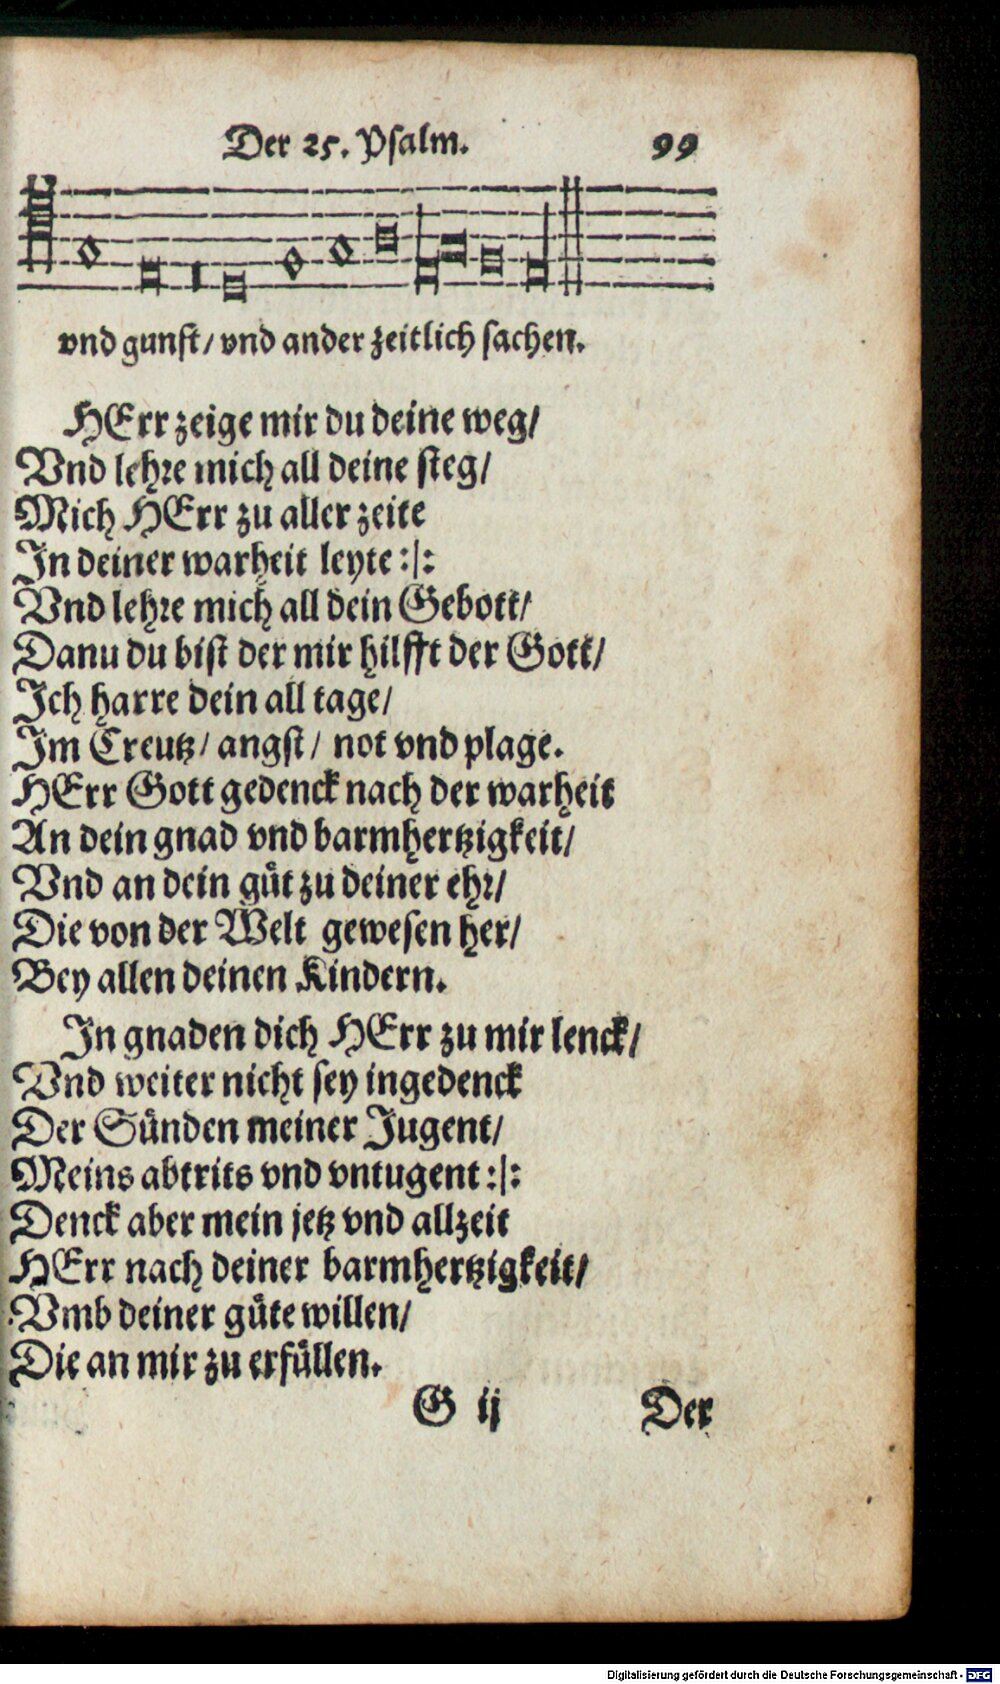 Der 25. Psalm. 99
vnd gunst/ vnd ander zeitlich sachen.
HErr zeige mir du deine weg/
Vnd lehre mich all deine steg/
Mich HErr zu aller zeite
In deiner warheit leyte :|:
Vnd lehre mich all dein Gebott/
Danu du bist der mir hilfft der Gott/
Ich harre dein all tage/
Im Creutz/ angst/ not vnd plage.
HErr Gott gedenck nach der warheit
An dein gnad vnd barmhertzigkeit/
Vnd an dein güt zu deiner ehr/
Die von der Welt gewesen her/
Bey allen deinen Kindern.
In gnaden dich HErr zu mir lenck/
Vnd weiter nicht sey ingedenck
Der Sünden meiner Jugent/
Meins abtrits vnd vntugent :|:
Denck aber mein jetz vnd allzeit
HErr nach deiner barmhertzigkeit/
Vmb deiner güte willen/
Die an mir zu erfüllen.
G ij Der
Digitalisierung gefördert durch die Deutsche Forschungsgemeinschaft - DFG